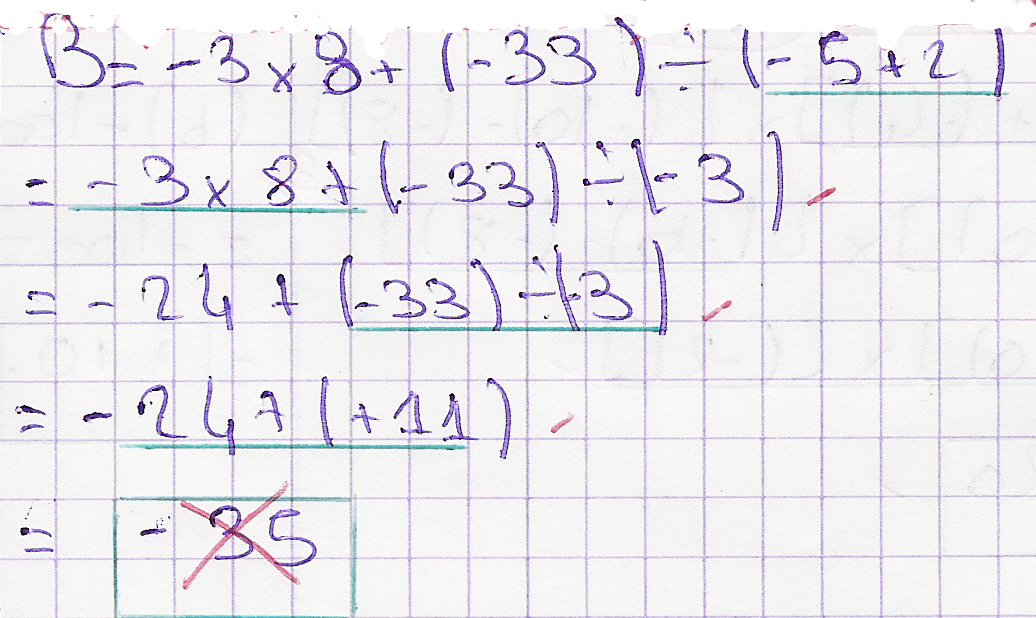 B = -3 × 8 + (-33) ÷ (-5+2)
= -3 × 8 + (-33) ÷ (-3)
= -24 + (-33) ÷ (-3)
= -24 + (+11)
= -35